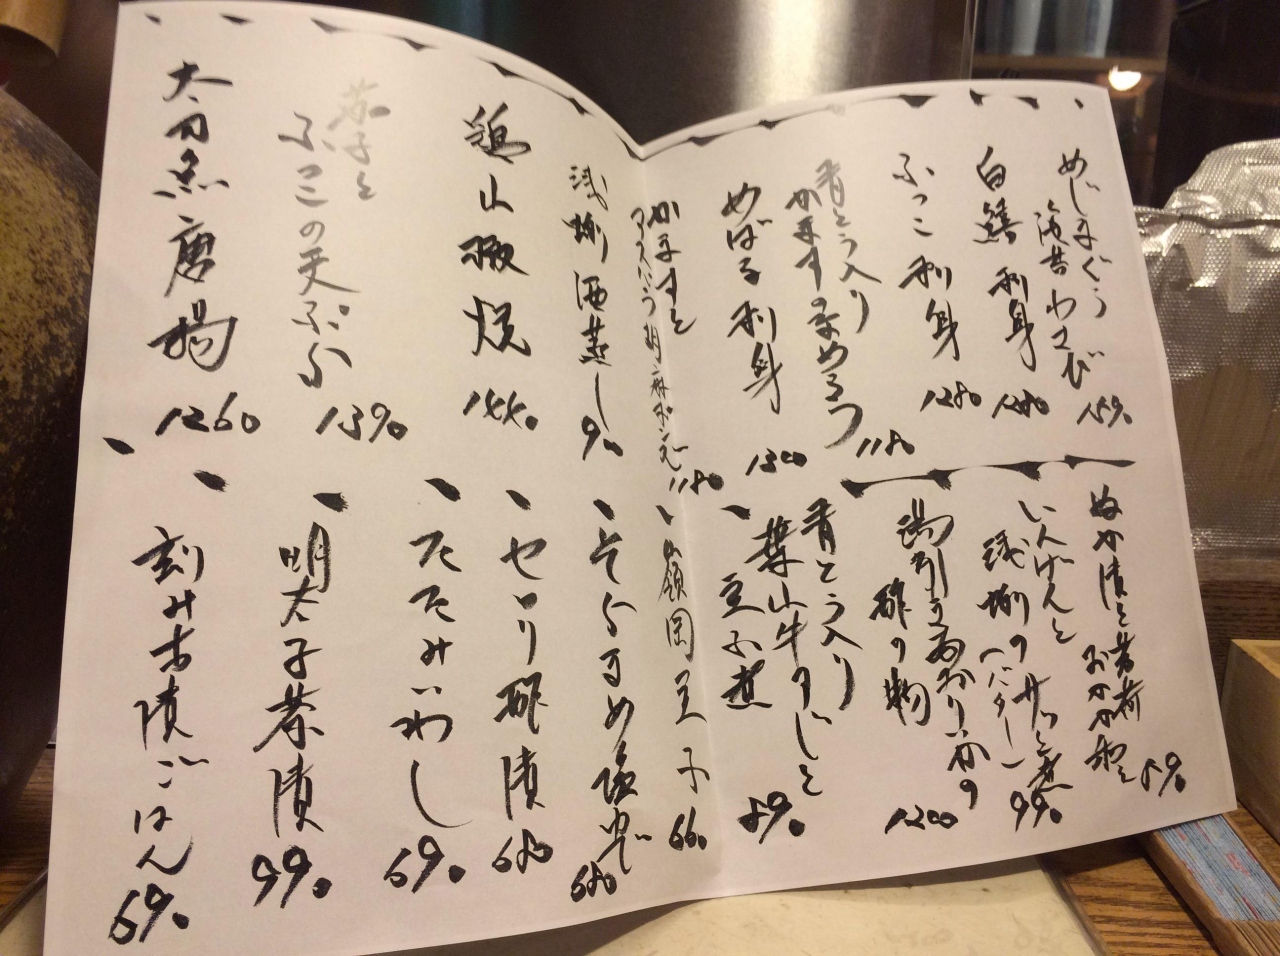 めじまぐろ
海苔わさび
1590
白鱚刺身
1280
ふっこ刺身
1280
青とう入り
かますのなめろう
1180
めばる刺身
1300
かますと
明太
1180
浅蜊酒蒸し
900
鶏山椒焼
1440
茶子と
ふこの天ぷら
1390
太刀魚唐揚
1260
ぬか漬と茗荷
おかか和え
590
いんげんと
浅蜊のサッと煮
(バター)
990
湯引きあおりいかの
酢の物
1200
青とう入り
葉山牛すじと
豆ふ煮
890
嶺岡豆子
660
そらまめ塩ゆで
680
セロリ酢漬
680
たたみいわし
690
明太子茶漬
990
刻み古漬ごはん
690